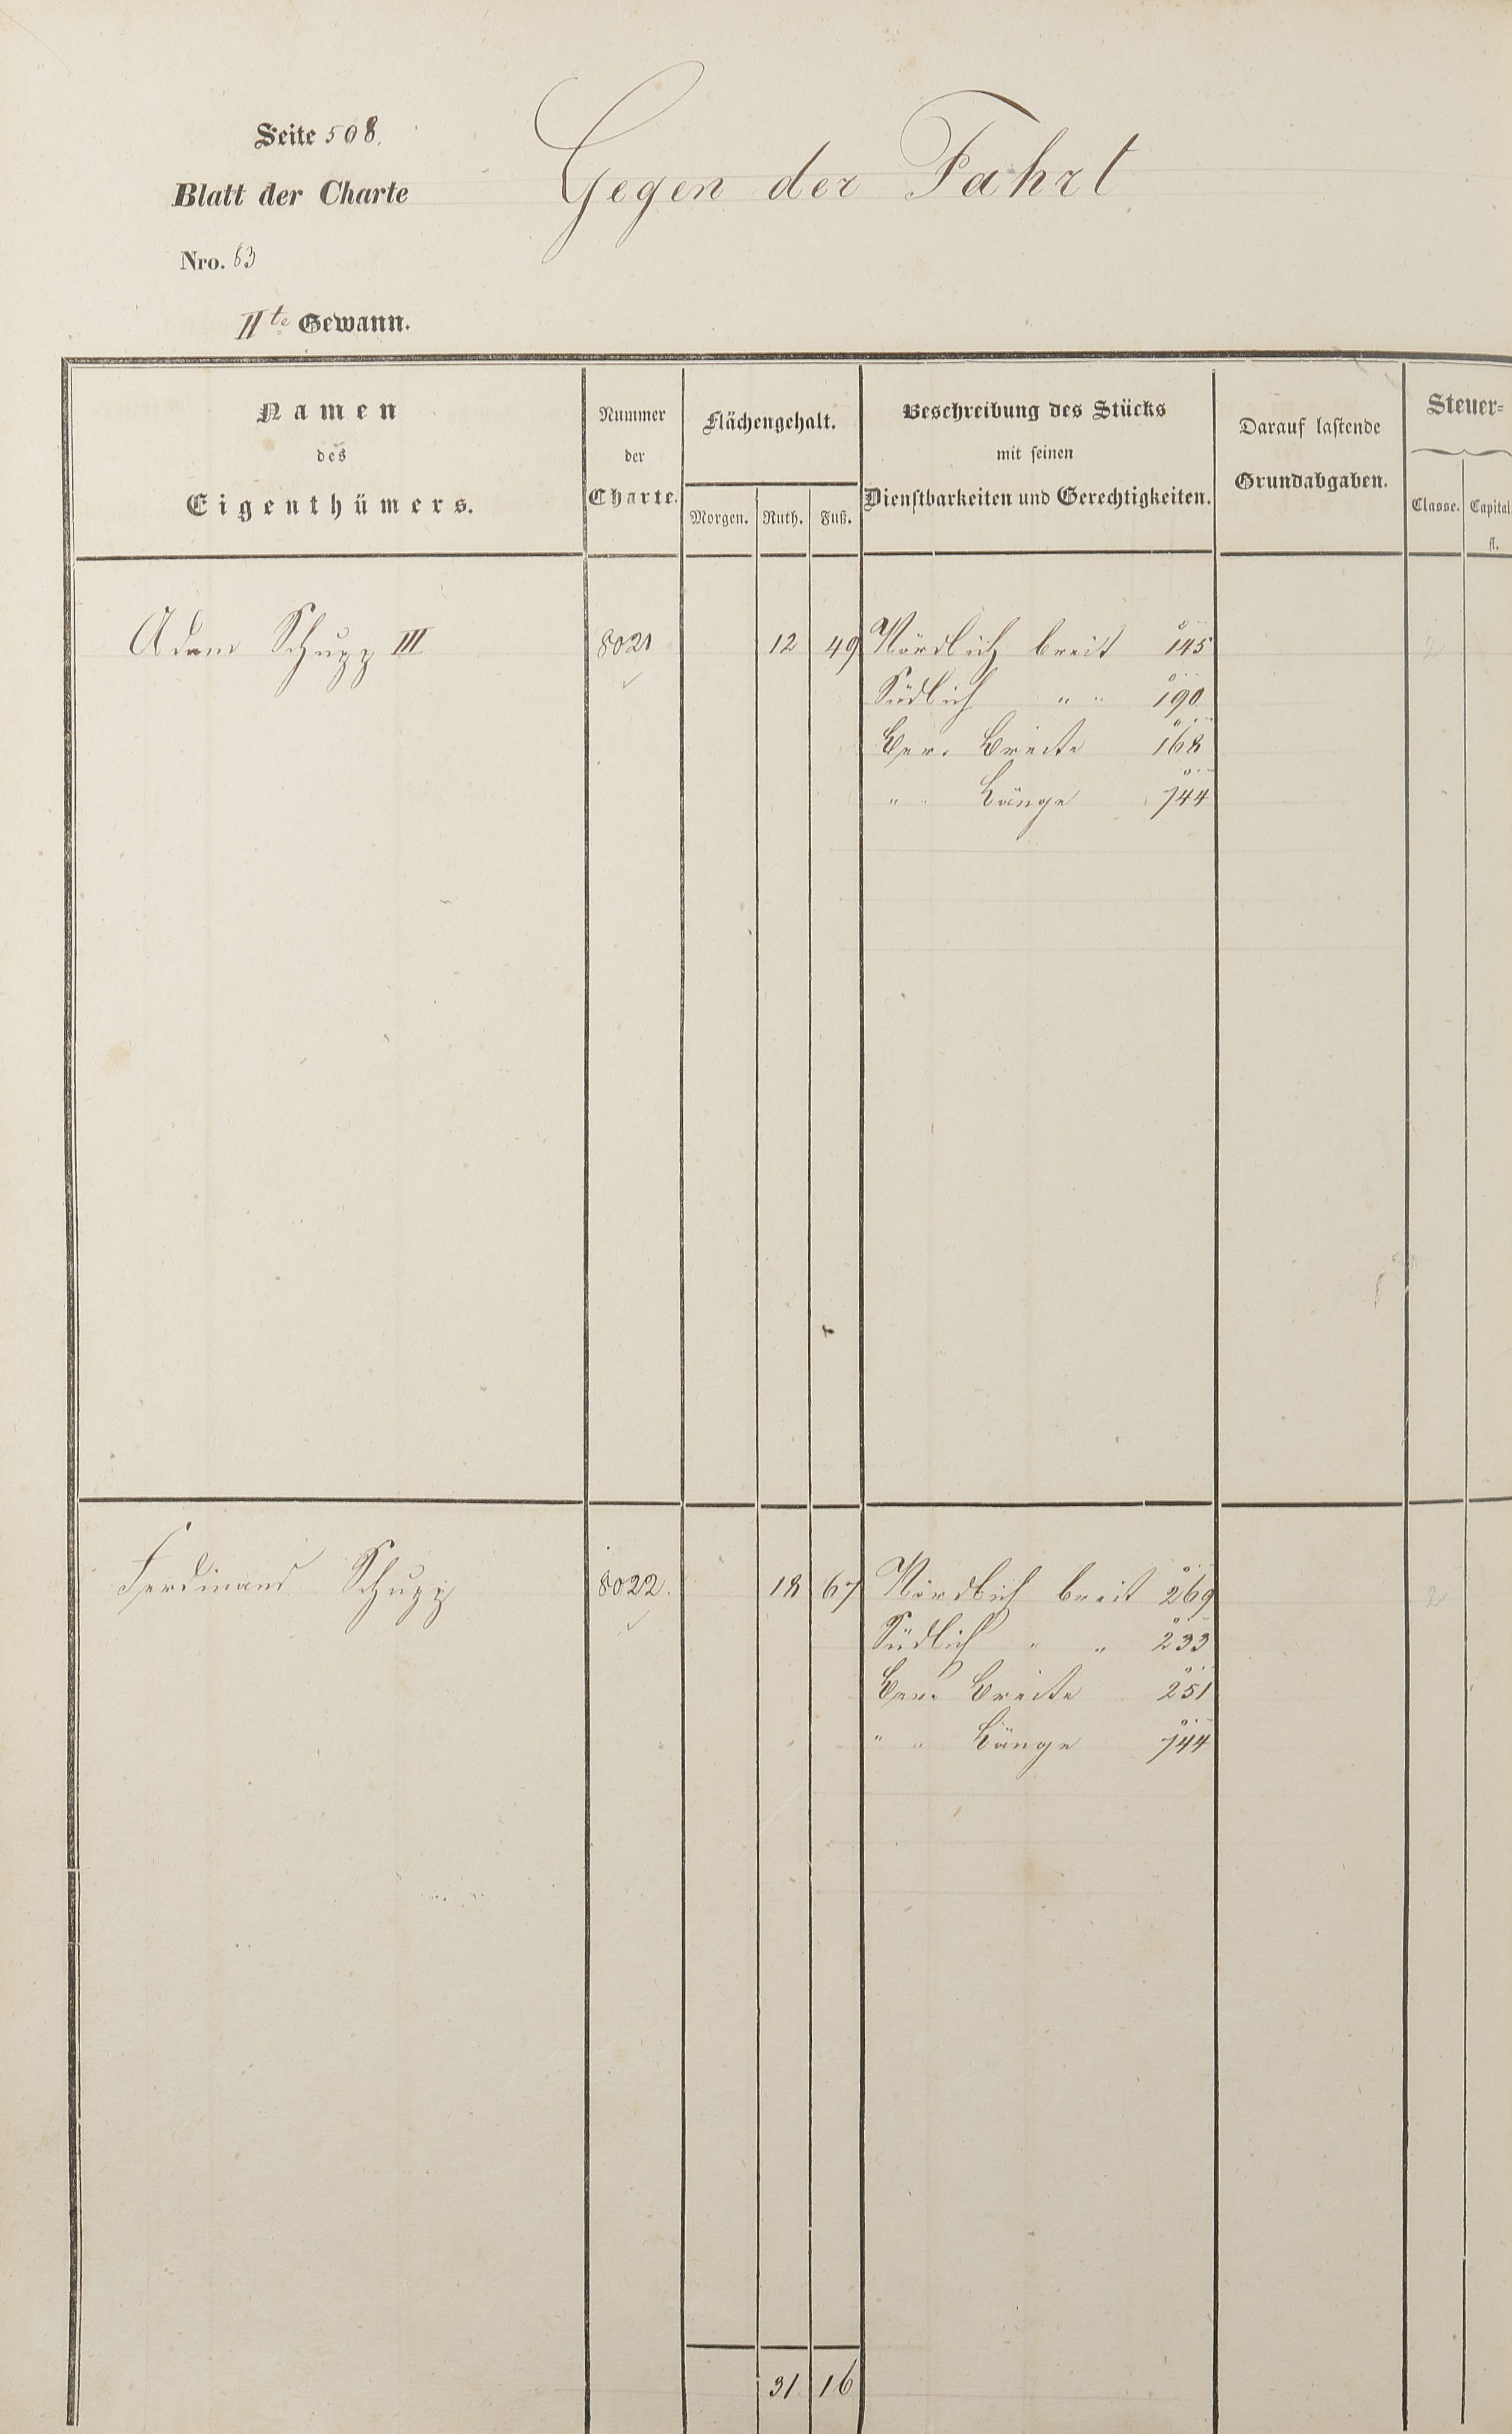 Seite 508.
Blatt der Charte
Gegen der Fahrt
Nro. 63
IIte Gewann.
Namen
des
Eigenthümers.
Nummer
der
Charte.
Flächengehalt.
Morgen. Ruth. Fuß.
Beschreibung des Stücks
mit seinen
Dienstbarkeiten und Gerechtigkeiten.
Darauf lastende
Grundabgaben.
Steuer=
Classe. Capital
fl.
Adam Schupp III 8021 12 49 Nördlich breit 145 2
Südlich " " 190
Ber. Breite 168
" " Länge 744
Ferdinand Schupp 8022. 18 67 Nördlich breit 269 2
Südlich " " 233
Ber. Breite 251
" " Länge 744
31 16